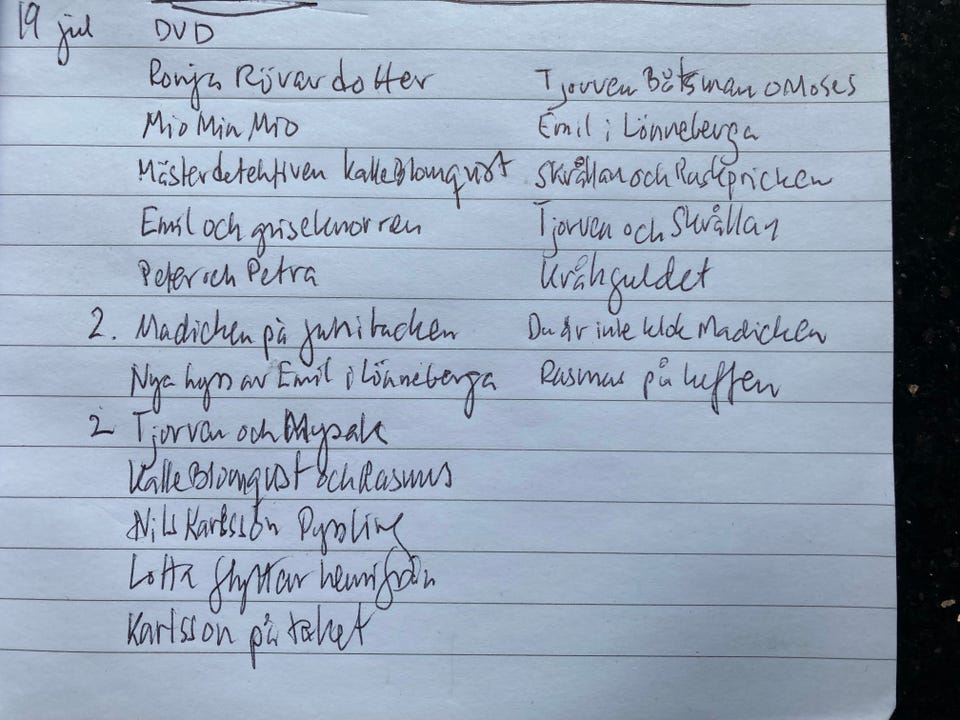 19 jul DVD
Ronja Rövardotter
Mio Min Mio
Mästerdetektiven Kalle Blomqvist
Emil och griseknorren
Peter och Petra
2. Madicken på Junibacken
Nya hyss av Emil i Lönneberga
2 Tjorven och Mysak
Kalle Blomqvist och Rasmus
Nils Karlsson Pyssling
Lotta flyttar hemifrån
Karlsson på taket
Tjorven Båtsman o Moses
Emil i Lönneberga
Skrållan och Ruskpricken
Tjorven och Skrållan
Kråkguldet
Du är inte klok Madicken
Rasmus på luffen